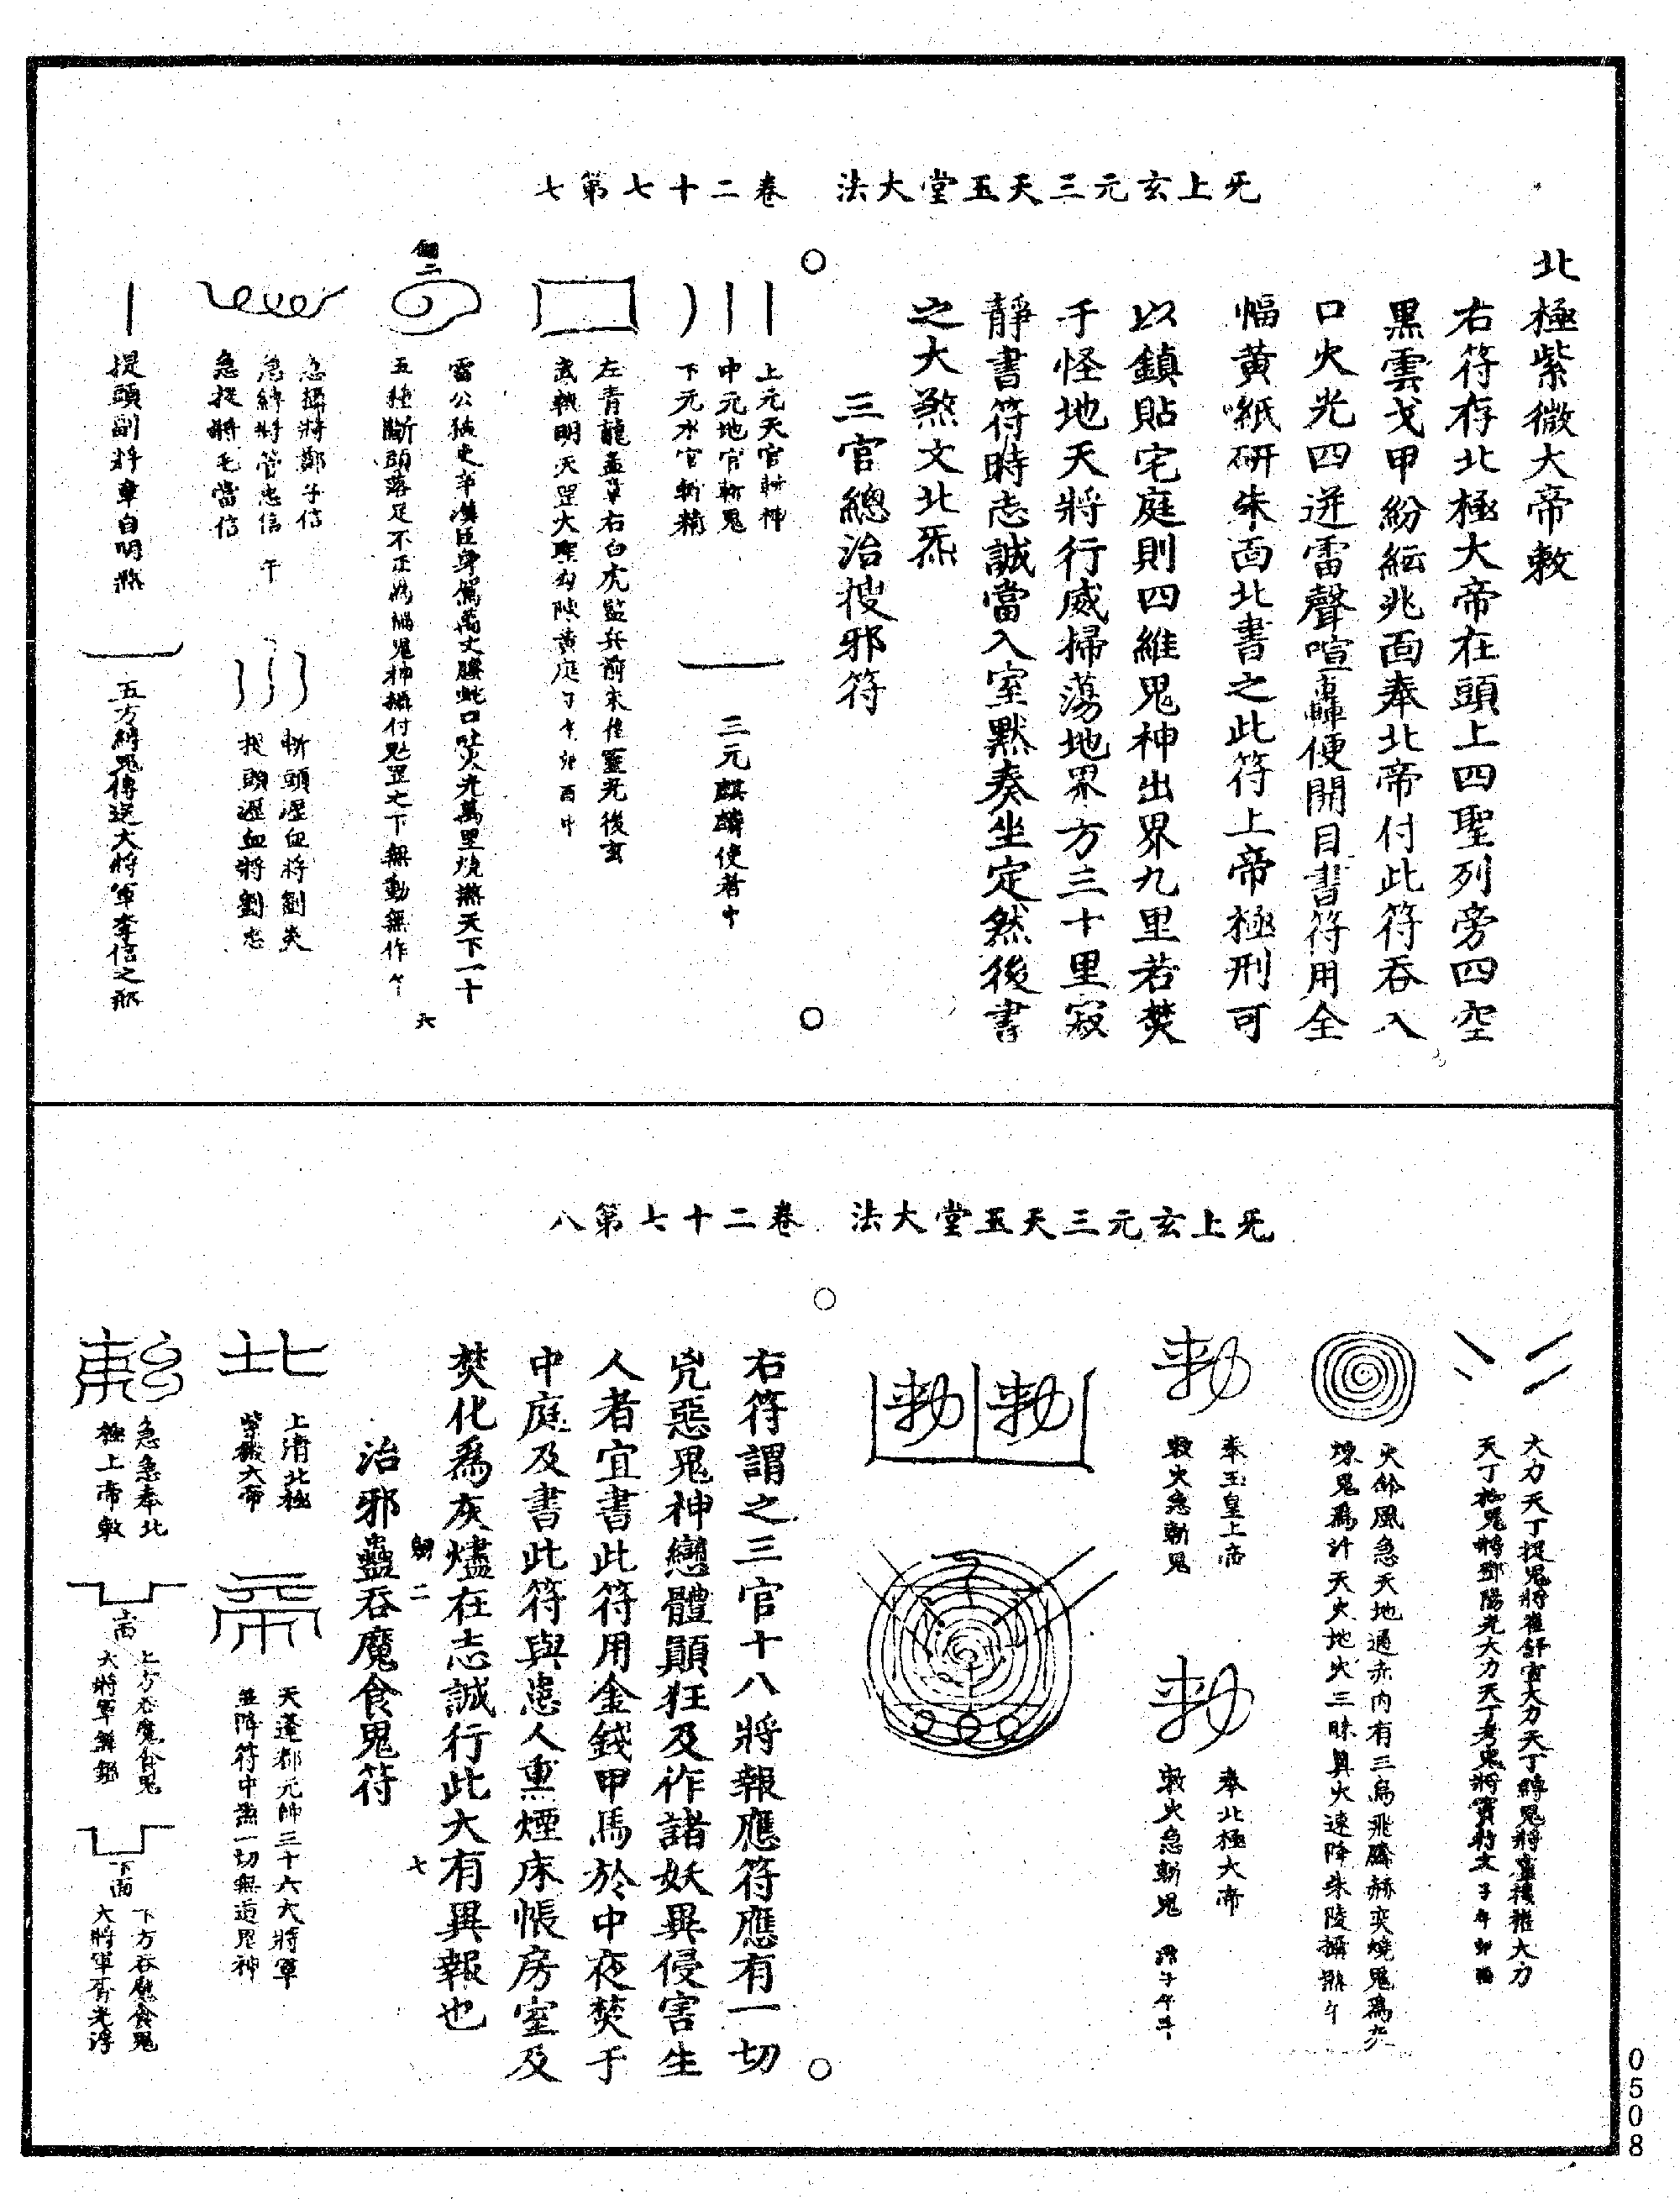 无上玄元三天玉堂大法　卷二十七第七
北極紫微大帝敕
右符存北極大帝在頭上四聖列旁四空
黑雲戈甲紛紜兆面奉北帝付此符吞入
口火光四迸雷聲喧轟便開目書符用全
幅黃紙研朱面北書之此符上帝極刑可
以鎮貼宅庭則四維鬼神出界九里若焚
于怪地天將行威掃蕩地界方三十里寂
靜書符時志誠當入室默奏坐定然後書
之大煞文北炁
三官總治搜邪符
上元天官斬神
中元地官斬鬼
下元水官斬精
三元麒麟使者
左青龍孟章右白虎監兵前朱雀靈光後玄
武執明天罡大聖勾陳黃庭
雷公猛吏辛漢臣身長萬丈騰蛇口吐火光萬里燒燕天下一十
五種斷頭落足不正為禍鬼神攝付魁罡之下無動無作
六
急攝將鄭子信
急縛將管忠信
急捉將毛當信
斬頭瀝血將劉炎
捉頭瀝血將劉忠
提頭副將章白明
五方縛鬼傳送大將軍李信之
无上玄元三天玉堂大法　卷二十七第八
大力天丁捉鬼將崔舒 大力天丁縛鬼將盧 大力
天丁 鬼將鄧陽光大力天丁考鬼將竇 子午卯酉
火鈴風急天地通赤內有三烏飛騰赫奕燒鬼為
煉鬼為汁天火地火三昧真火速降朱陵攝
奉玉皇上帝
敕火急斬鬼
奉北極大帝
敕火急斬鬼
右符謂之三官十八將報應符應有一切
兇惡鬼神戀體顛狂及作諸妖異侵害生
人者宜書此符用金錢甲馬於中夜焚于
中庭及書此符與患人熏煙床帳房室及
焚化為灰燼在志誠行此大有異報也
治邪蠱吞魔食鬼符
七
上清北極
紫微大帝
天蓬都元帥三十六大將軍
並降符中 一切無道鬼神
急急奉北
極上帝敕
上面
上方吞魔食鬼
大將軍
下面
下方吞魔食鬼
大將軍
0508